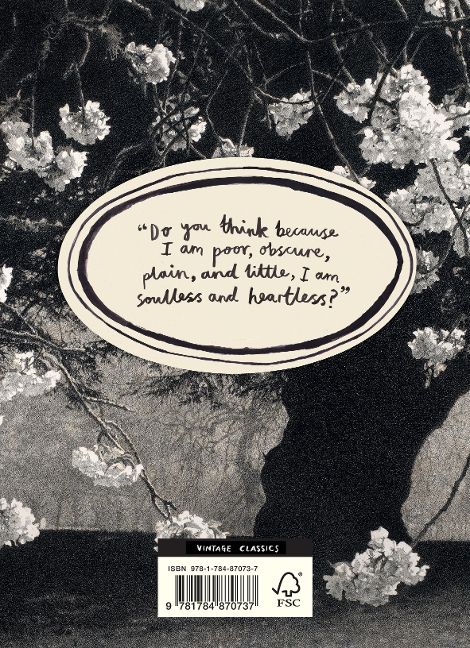 “Do you think because
I am poor, obscure,
plain, and little, I am
soulless and heartless?”
VINTAGE CLASSICS
ISBN 978-1-784-87073-7
9 781784 870737
FSC